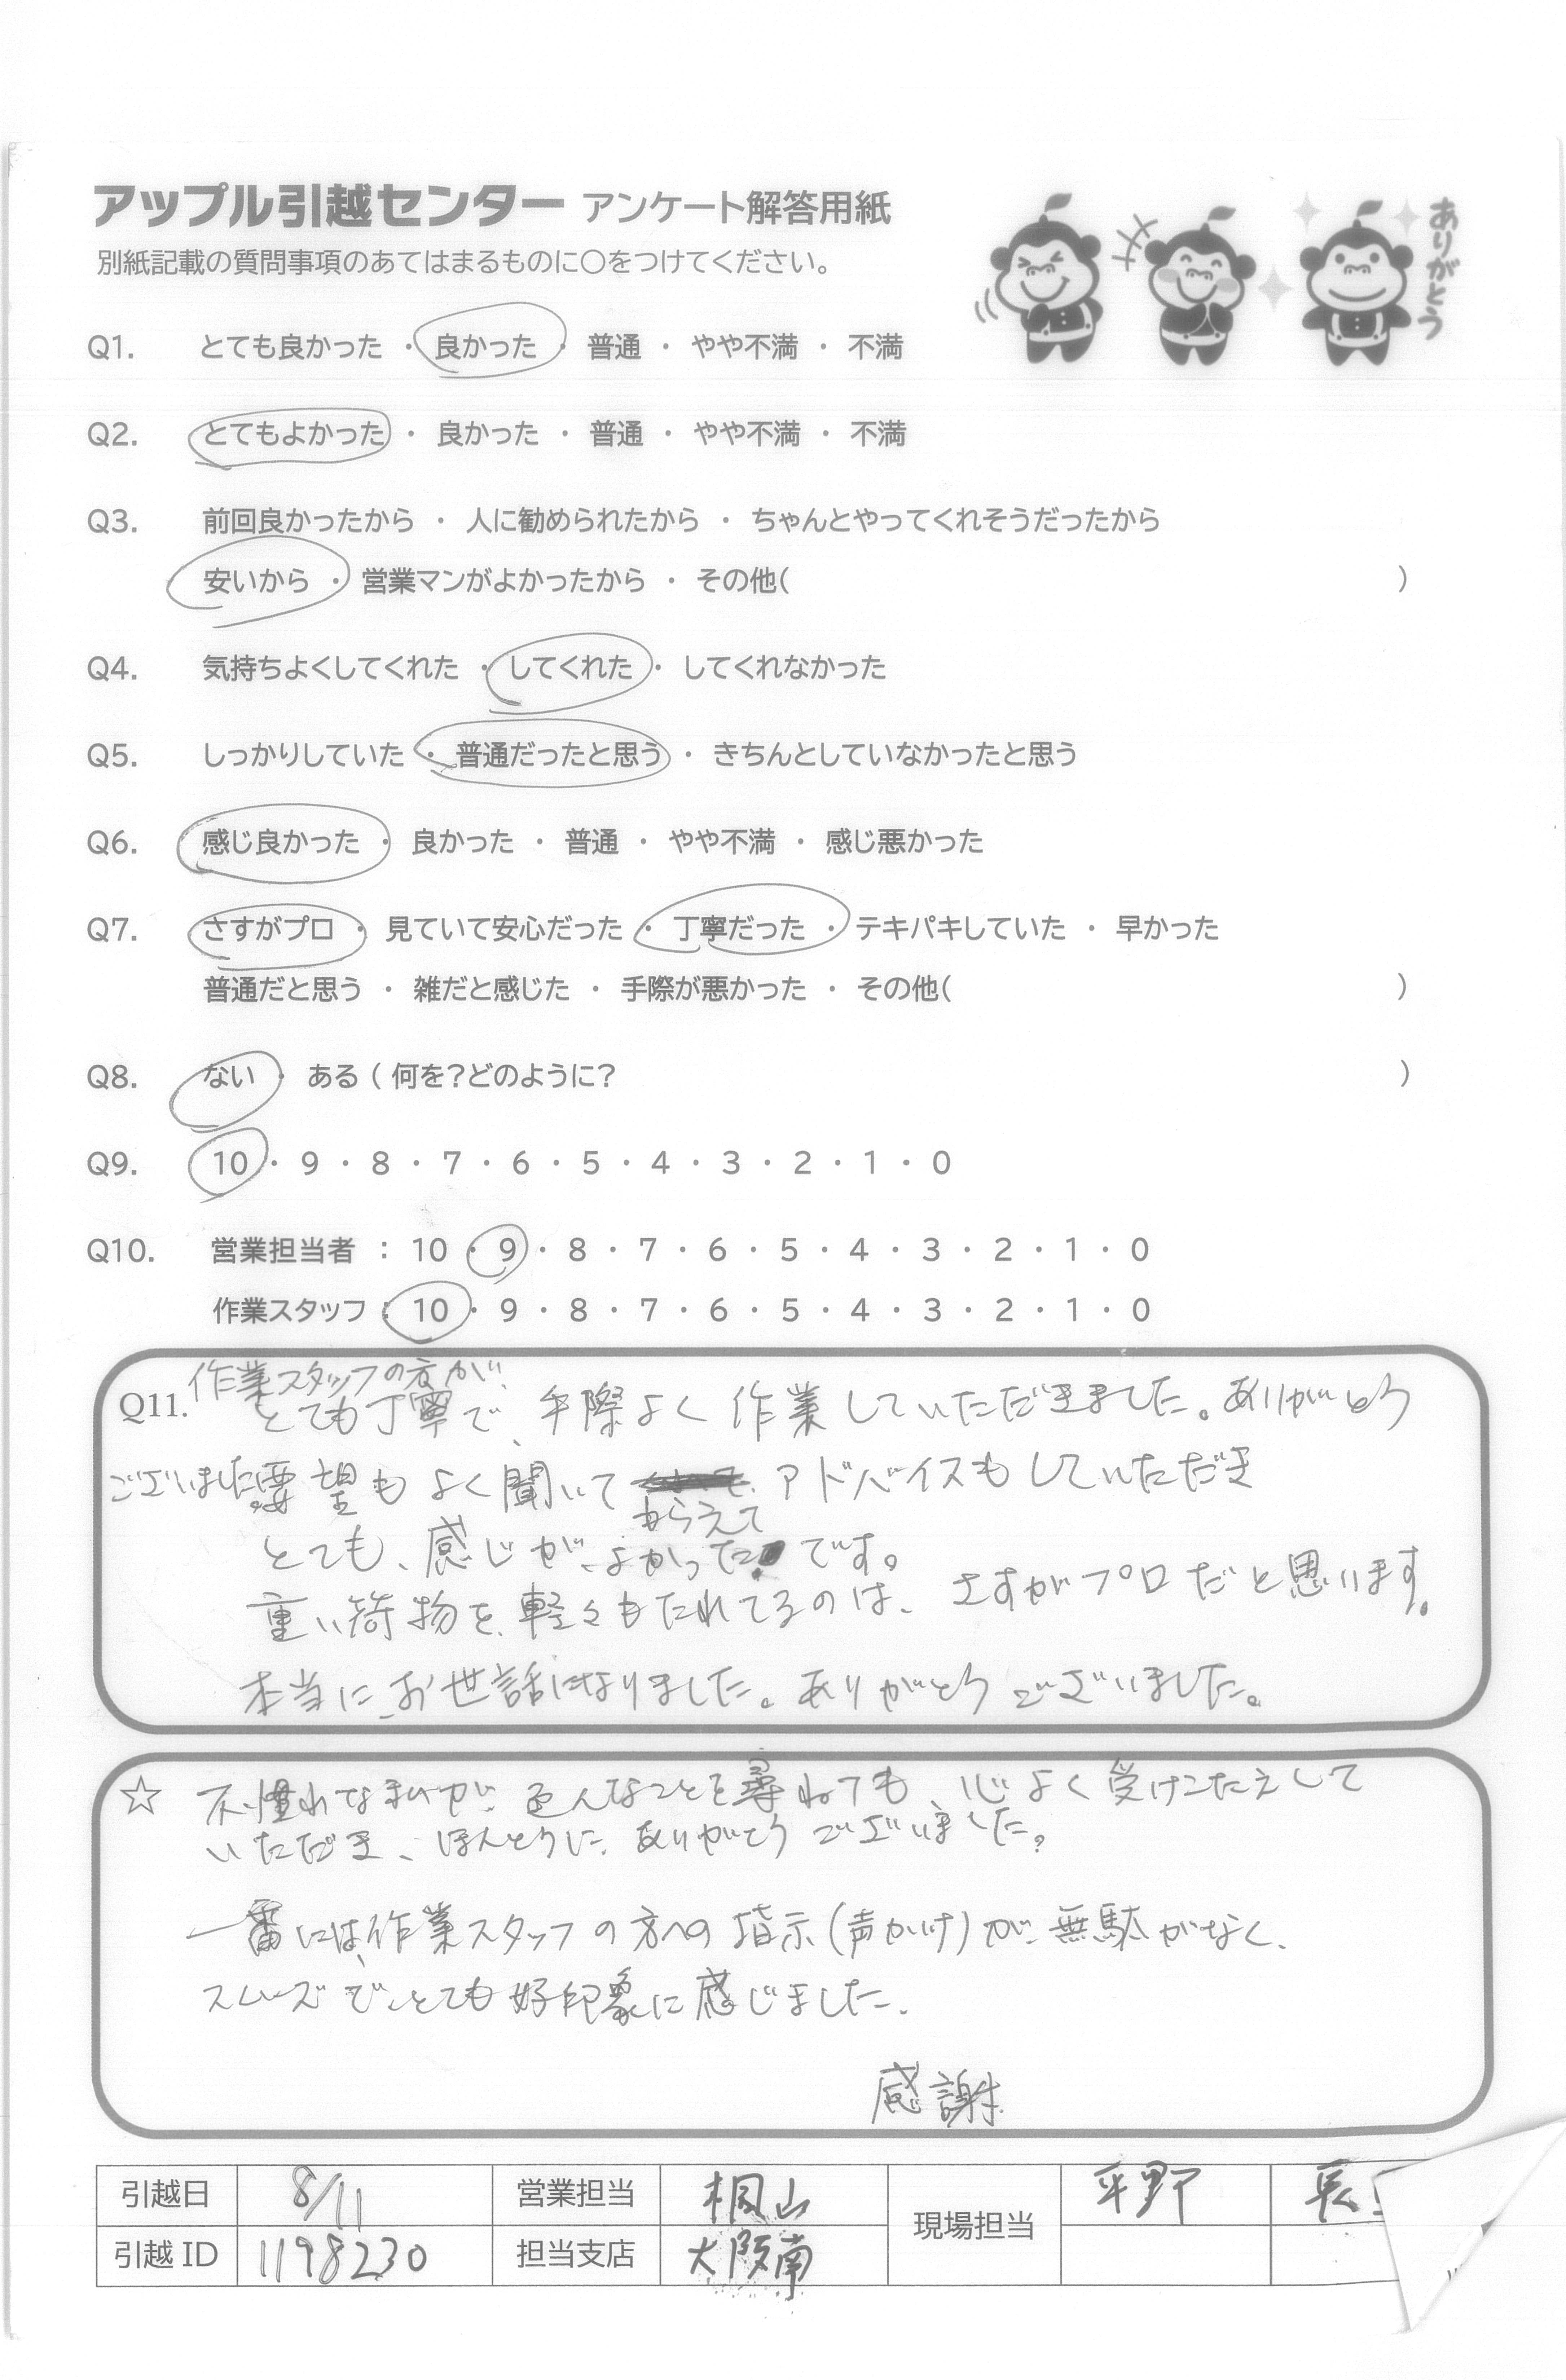 アップル引越センター アンケート解答用紙
ありがとう
別紙記載の質問事項のあてはまるものに○をつけてください。
Q1. とても良かった ・ 良かった ・ 普通 ・ やや不満 ・ 不満
Q2. とてもよかった ・ 良かった ・ 普通 ・ やや不満 ・ 不満
Q3. 前回良かったから ・ 人に勧められたから ・ ちゃんとやってくれそうだったから
安いから ・ 営業マンがよかったから ・ その他( )
Q4. 気持ちよくしてくれた ・ してくれた ・ してくれなかった
Q5. しっかりしていた ・ 普通だったと思う ・ きちんとしていなかったと思う
Q6. 感じ良かった ・ 良かった ・ 普通 ・ やや不満 ・ 感じ悪かった
Q7. さすがプロ ・ 見ていて安心だった ・ 丁寧だった ・ テキパキしていた ・ 早かった
普通だと思う ・ 雑だと感じた ・ 手際が悪かった ・ その他( )
Q8. ない ・ ある ( 何を?どのように? )
Q9. 10 ・ 9 ・ 8 ・ 7 ・ 6 ・ 5 ・ 4 ・ 3 ・ 2 ・ 1 ・ 0
Q10. 営業担当者 : 10 ・ 9 ・ 8 ・ 7 ・ 6 ・ 5 ・ 4 ・ 3 ・ 2 ・ 1 ・ 0
作業スタッフ : 10 ・ 9 ・ 8 ・ 7 ・ 6 ・ 5 ・ 4 ・ 3 ・ 2 ・ 1 ・ 0
作業スタッフの方が、
Q11. とても丁寧で、手際よく作業していただきました。ありがとう
ございました。要望もよく聞いて アドバイスもしていただき
もらえて
とても、感じが、よかったです。
重い荷物を、軽々もたれてるのは、さすがプロだと思います。
本当に、お世話になりました。ありがとうございました。
☆ 不慣れな私が、色んなことを尋ねても、心よく受けこたえして
いただき、ほんとうに、ありがとうございました。
一番には、作業スタッフの方への指示(声かけ)が、無駄がなく、
スムーズで、とても好印象に感じました。
感謝
引越日 8/11 営業担当 桐山 現場担当 平野 長
引越ID 1198230 担当支店 大阪南